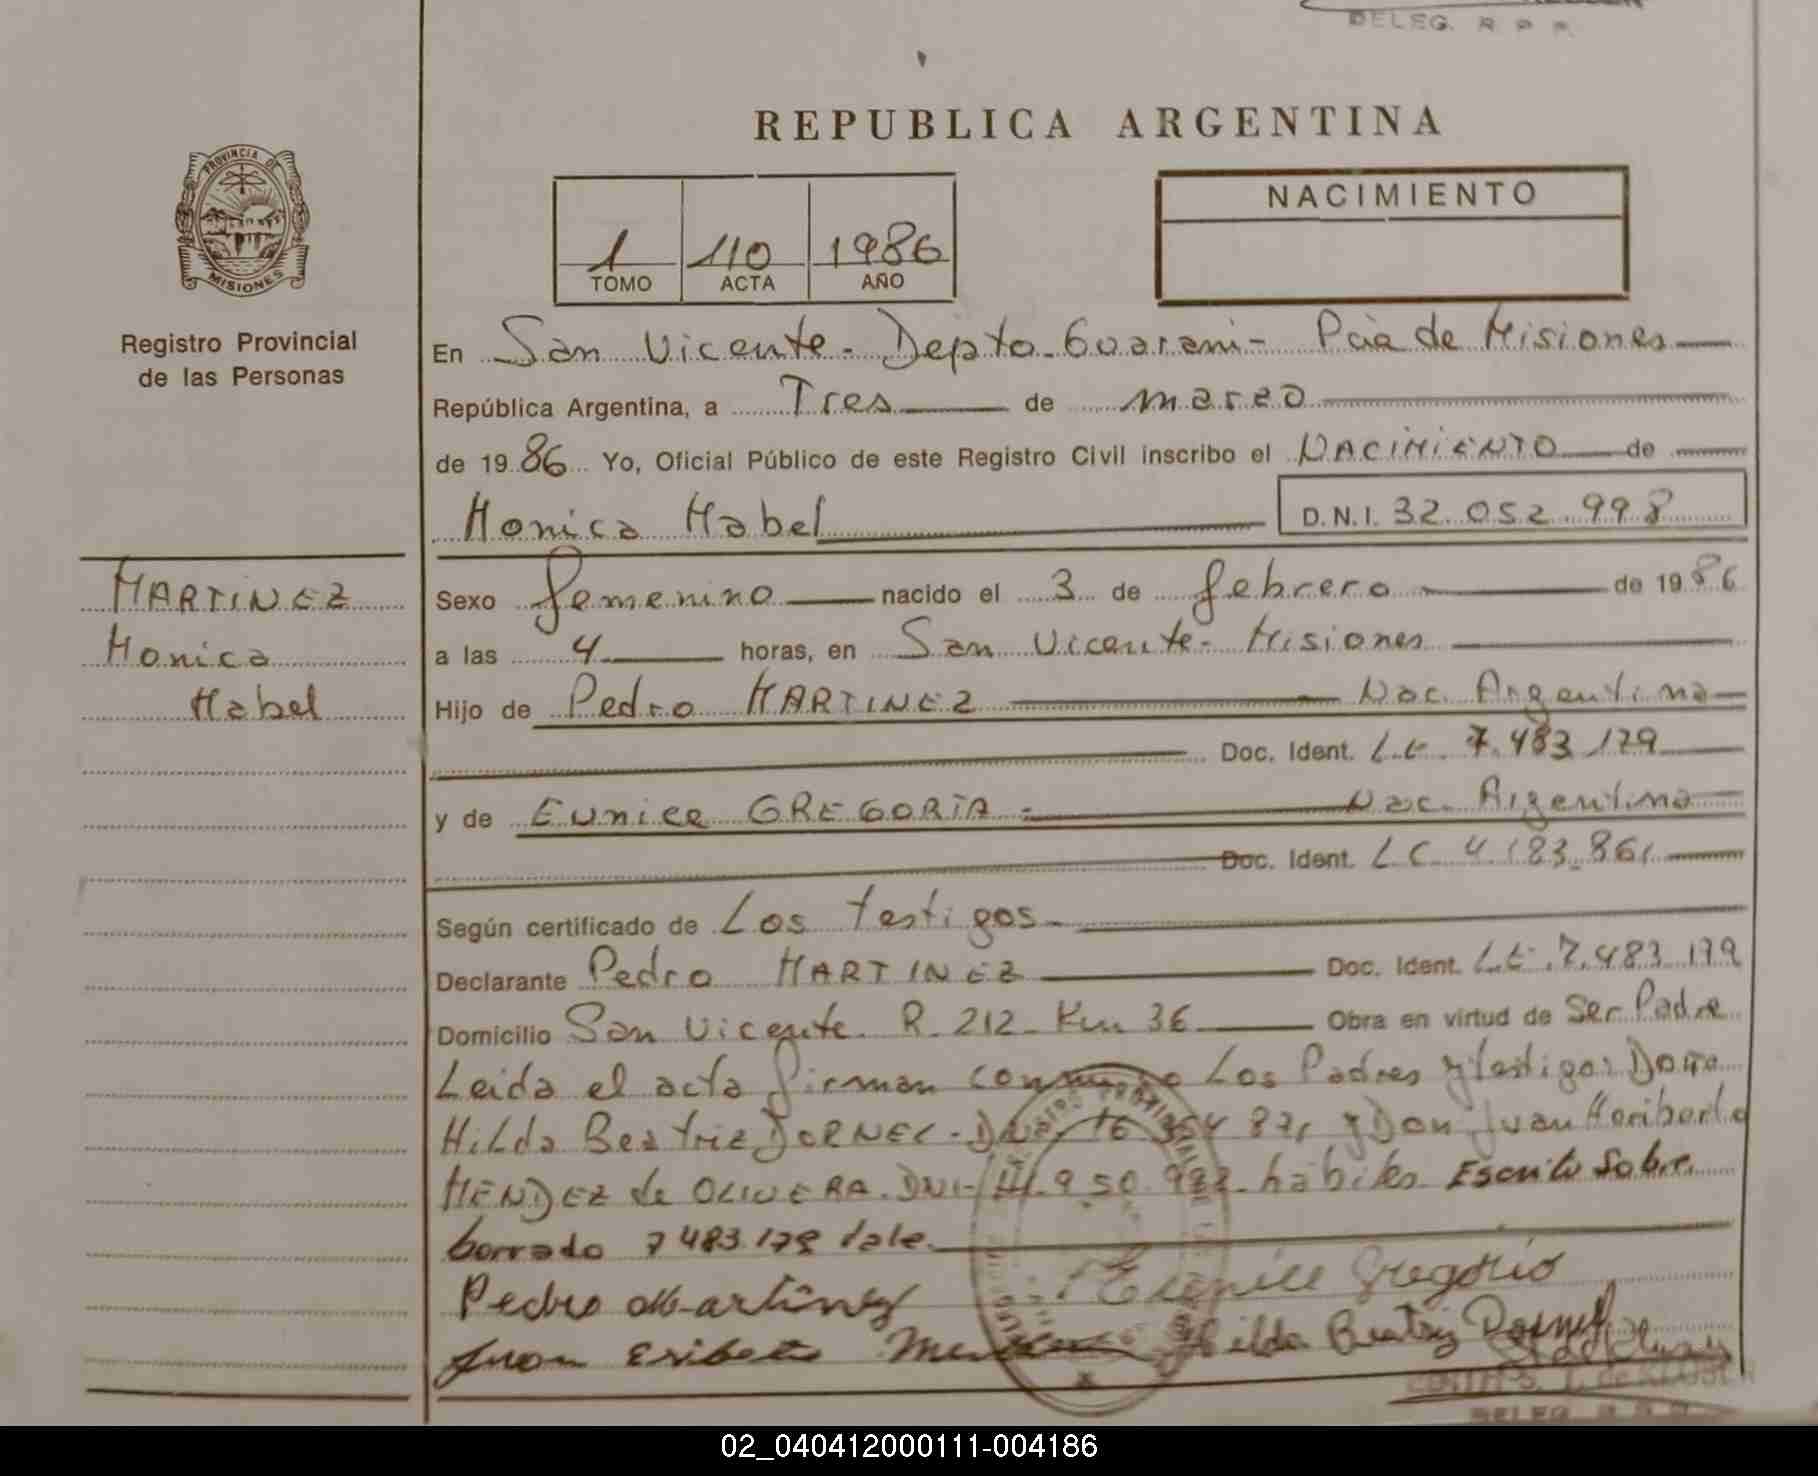 DELEG. R P P.
REPUBLICA ARGENTINA
PROVINCIA DE
MISIONES
1 110 1986
TOMO ACTA AÑO
NACIMIENTO
Registro Provincial
de las Personas
En San Vicente - Depto. Guarani - Pcia de Misiones
República Argentina, a Tres de marzo
de 1986 Yo, Oficial Público de este Registro Civil inscribo el NACIMIENTO de
Monica Mabel D.N.I. 32.052.998
MARTINEZ
Monica
Mabel
Sexo femenino nacido el 3 de febrero de 1986
a las 4 horas, en San Vicente - Misiones
Hijo de Pedro MARTINEZ Nac. Argentina
Doc. Ident. L.E. 7.483.179
y de Eunice GREGORIA Nac. Argentina
Doc. Ident. L C 4.183.861
Según certificado de Los testigos
Declarante Pedro MARTINEZ Doc. Ident. L.E. 7.483.179
Domicilio San Vicente. R. 212 - Km 36 Obra en virtud de Ser Padre
Leida el acta firman conmigo Los Padres y testigos Doña
Hilda Beatriz DORNEL - DNI 16 y Don Juan Heriberto
MENDEZ de OLIVERA. DNI habiles. Escrito Sobre
borrado 7 483.179 Vale.
Pedro Martinez Eunice Gregorio
Juan Eriberto Hilda Beatriz Dornel
DELEG. R P P
02_040412000111-004186